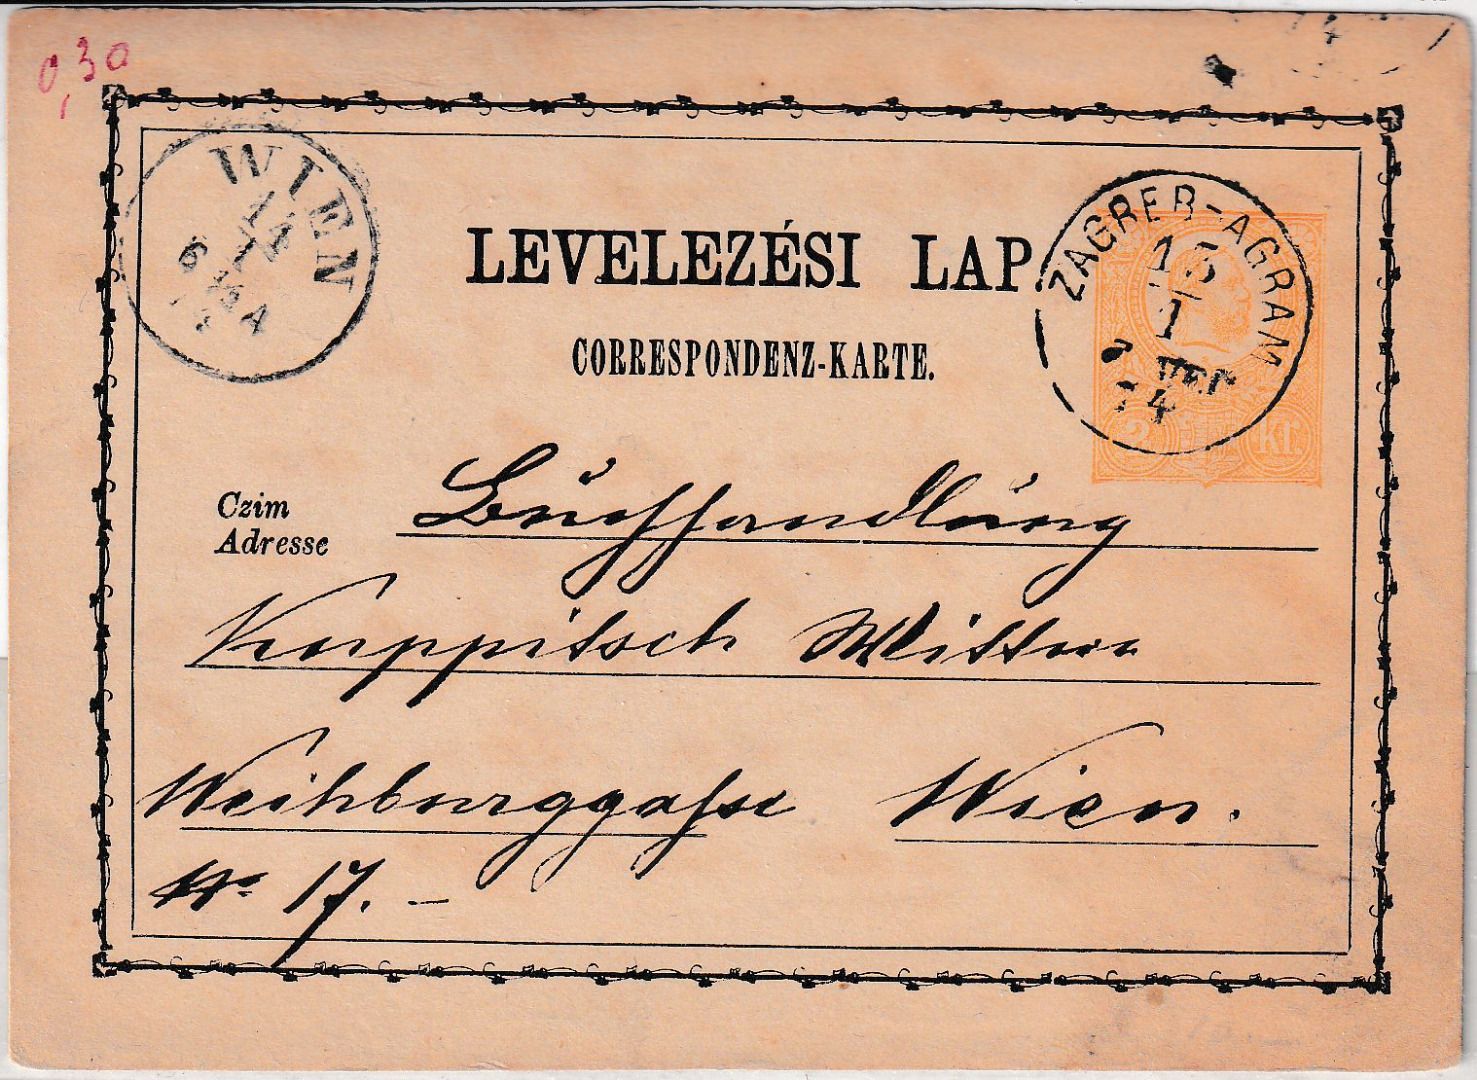 0,30
WIEN
14
1
6 ½ A
LEVELEZÉSI LAP.
CORRESPONDENZ-KARTE.
ZAGREB-AGRAM
15
1
74
2 kr.
Czim
Adresse
Buchhandlung
Kuppitsch Wittwe
Weihburggasse Wien.
Nr 17. –